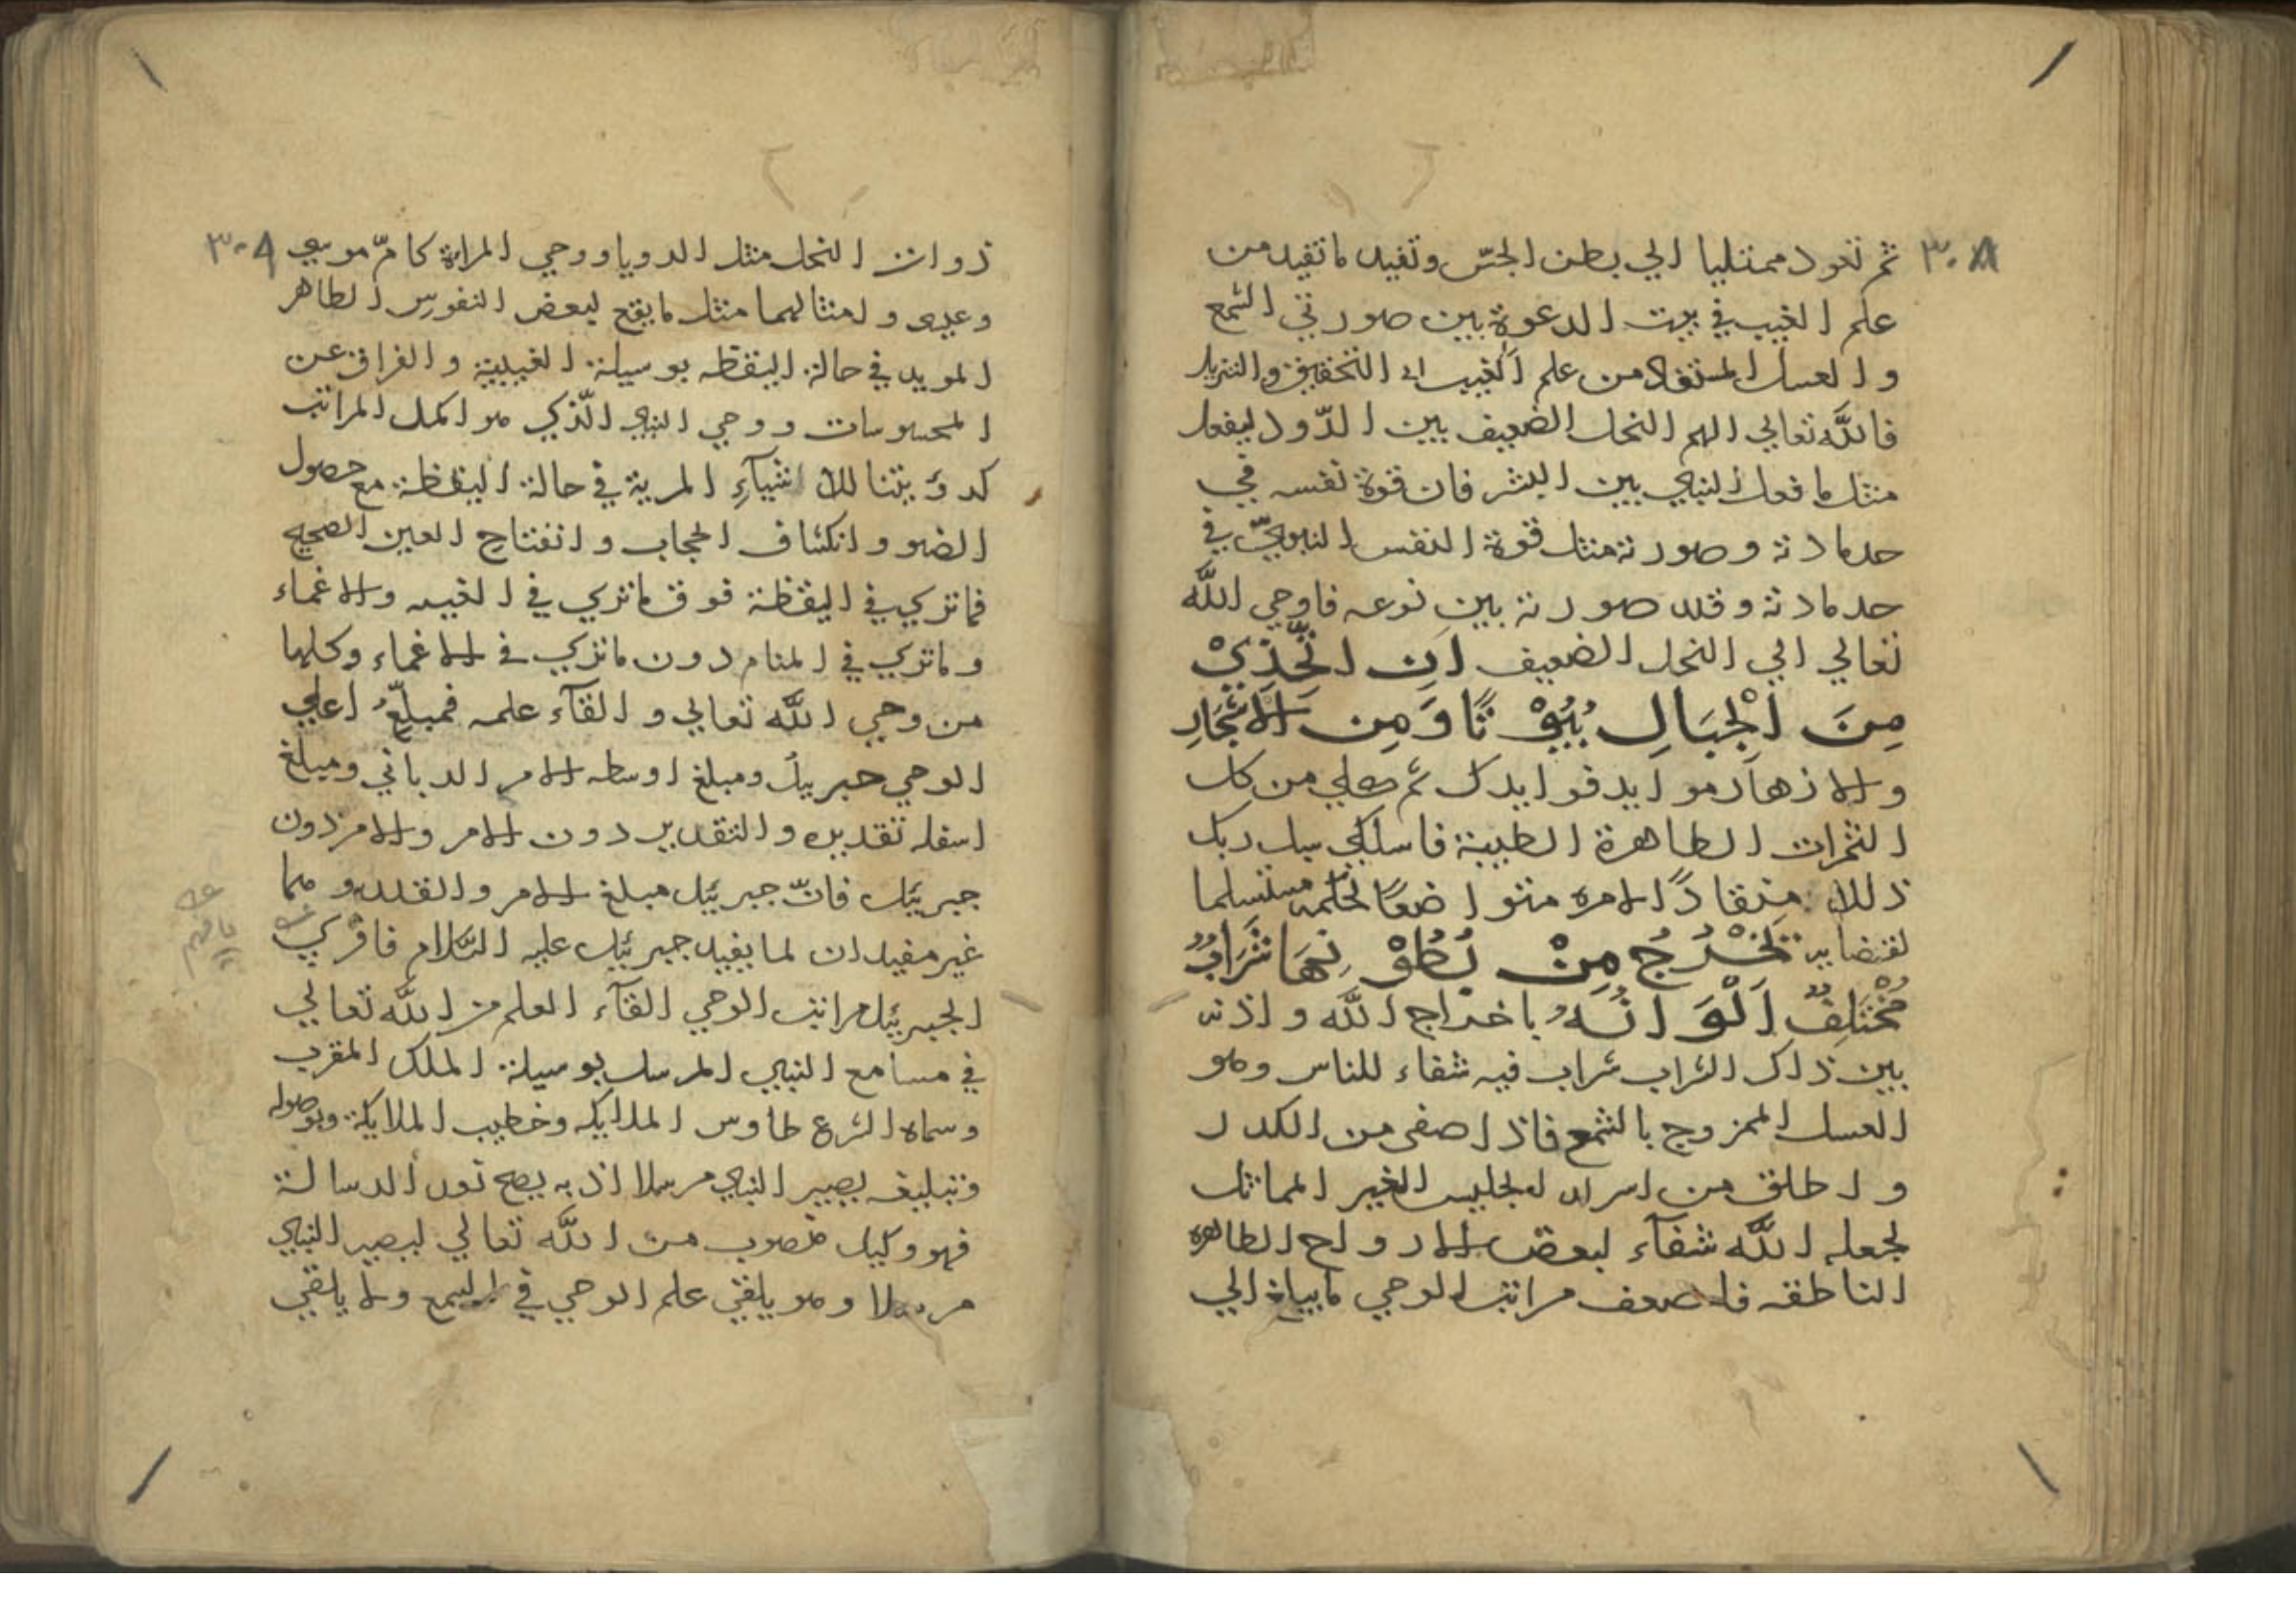 ٣٠٨
ثم تعود ممتليا الي بطن الجسّ وتفيد ما تفيد من
علم الغيب في بيت الدعوة بين صورتي الشمع
والعسل المستفاد من علم الغيب اي التحقيق والتنزيل
فاللّه تعالي الهم النحل الضعيف بين الدّود ليفعل
مثل ما فعل النبي بين البشر فان قوة نفسه في
حد مادته وصورته مثل قوة النفس النبويّ في
حد مادته وقد صورته بين نوعه فاوحي اللّه
تعالي الي النحل الضعيف اَنِ اتَّخِذِيْ
مِنَ الْجِبَالِ بُيُوْتًا وَمِنَ الاَشْجَارِ
والازهار موايد فوايدك ثم كلي من كل
الثمرات الطاهرة الطيبة فاسلكي سبل ربك
ذللا منقادًا لامره متواضعًا لحكمه مستسلما
لقضايه تَخْرُجُ مِنْ بُطُوْنِهَا شَرَابٌ
مُخْتَلِفٌ اَلْوَانُهُ باخراج اللّه واذنه
بين ذاك الشراب شراب فيه شفاء للناس وهو
العسل الممزوج بالشمع فاذا صفى من الكدر
واطلق من اسر الجليس الغير المماثل
لجعله اللّه شفآء لبعض الارواح الطاهره
الناطقه فاضعف مراتب الوحي ما بيانه الي
٣٠٩
ذوات النحل مثل الرويا ووحي المراة كامّ موسي
وعيسى وامثالهما مثل ما يقع لبعض النفوس الطاهر
المويد في حالة اليقظه بوسيلة الغيبية والفراق عن
المحسوسات ووحي النبي الّذي هو اكمل المراتب
كرؤيتنا للاشيآءِ المرية في حالة اليقظة مع حصول
الضو وانكشاف الحجاب وانفتاح العين الصحيح
فما تري في اليقظة فوق ما تري في الغيبه والاغماء
وما تري في المنام دون ما تري في الاغماء وكلها
من وحي اللّه تعالي والقآء علمه فمبلّغ اعلي
الوحي جبريل ومبلغ اوسطه الامر الرباني ومبلغ
اسفله تقديره والتقدير دون الامر والامر دون
جبرئيل فانّ جبرئيل مبلغ الامر والقدر وهما
غير مفيدان لما يفيد جبرئيل عليه السّلام فاقري
الجبرئيل مراتب الوحي القآء العلم من اللّه تعالي
في مسامع النبي المرسل بوسيلة الملك المقرب
وسماه الشرع طاوس الملايكه وخطيب الملايكة وبوصوله
وتبليغه يصير النبي مرسلا اذ به يصح نور الرسالة
فهو وكيل منصوب من اللّه تعالي ليصير النبي
مرسلا وهو يلقي علم الوحي في السمع ولا يلقي